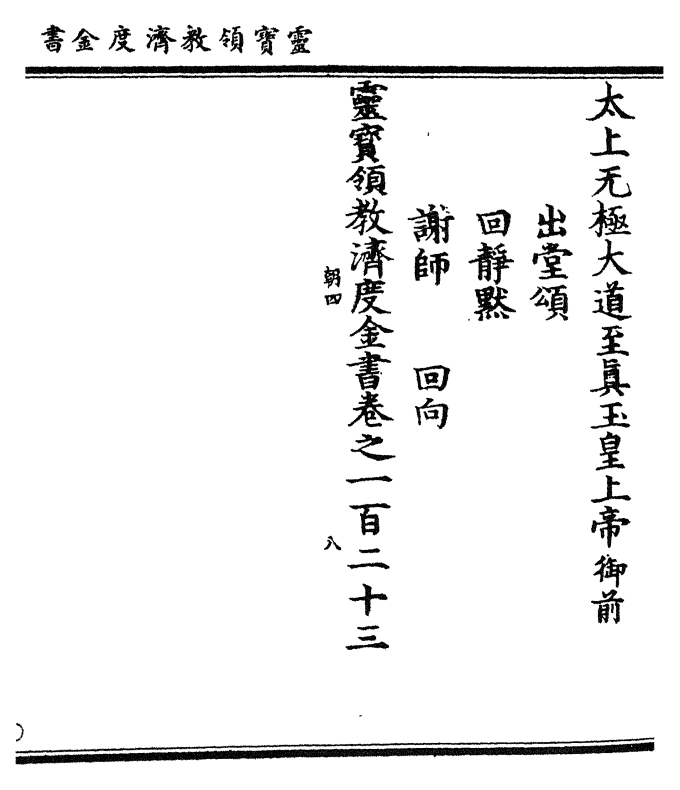 靈寶領教濟度金書
太上无極大道至眞玉皇上帝御前
出堂頌
回靜默
謝師　回向
靈寶領教濟度金書卷之一百二十三
朝四　八